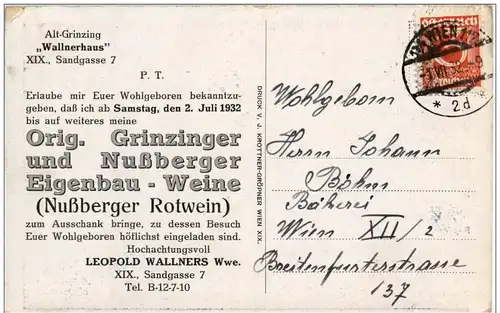 Alt-Grinzing
„Wallnerhaus"
XIX., Sandgasse 7
P. T.
Erlaube mir Euer Wohlgeboren bekanntzu-
geben, daß ich ab Samstag, den 2. Juli 1932
bis auf weiteres meine
Orig. Grinzinger
und Nußberger
Eigenbau - Weine
(Nußberger Rotwein)
zum Ausschank bringe, zu dessen Besuch
Euer Wohlgeboren höflichst eingeladen sind.
Hochachtungsvoll
LEOPOLD WALLNERS Wwe.
XIX., Sandgasse 7
Tel. B-12-7-10
DRUCK V. J. KROTTNER-GRÖPNER WIEN XIX.
WIEN
* 2d
Wohlgeborn
Herrn Johann
Böhm
Bäkerei
Wien XII/2
Breitenfurterstrasse
137